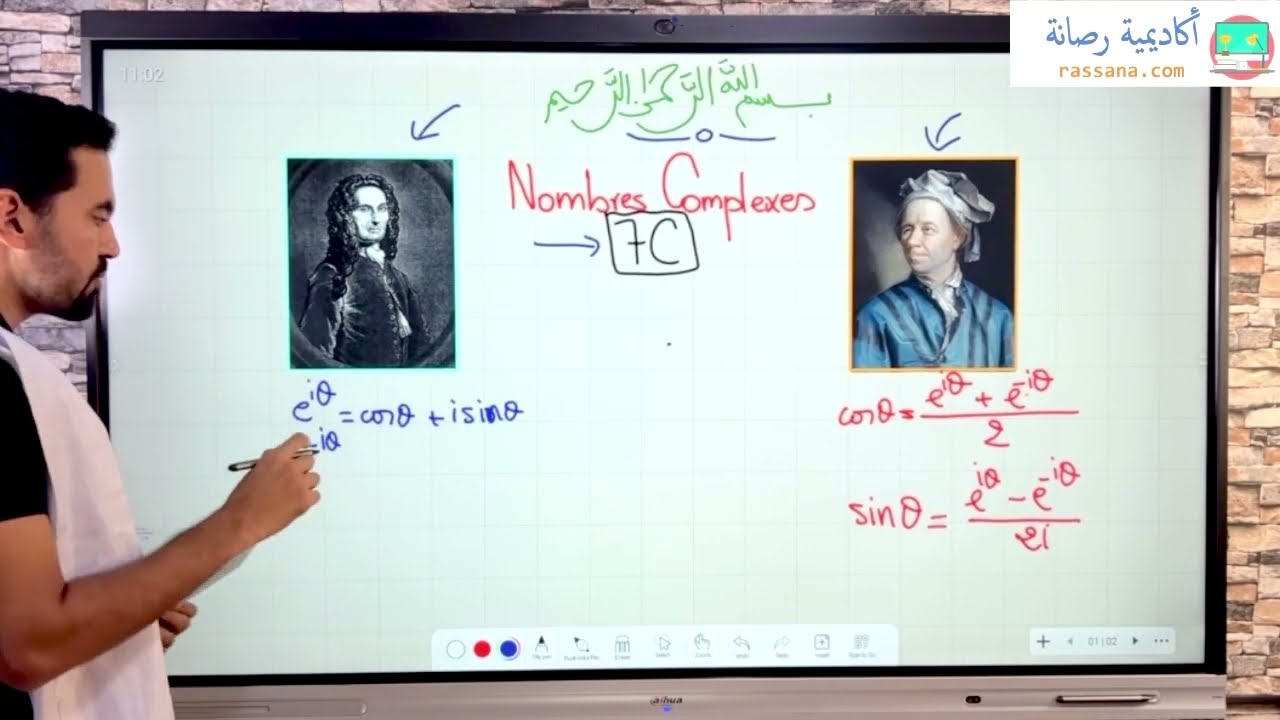 أكاديمية رصانة
rassana.com
11:02
بسم الله الرحمن الرحيم
Nombres Complexes
7C
e^{iθ} = cosθ + i sinθ
-iθ
cosθ = \frac{e^{iθ} + e^{-iθ}}{2}
sinθ = \frac{e^{iθ} - e^{-iθ}}{2i}
Select
Undo
01 | 02
alhua